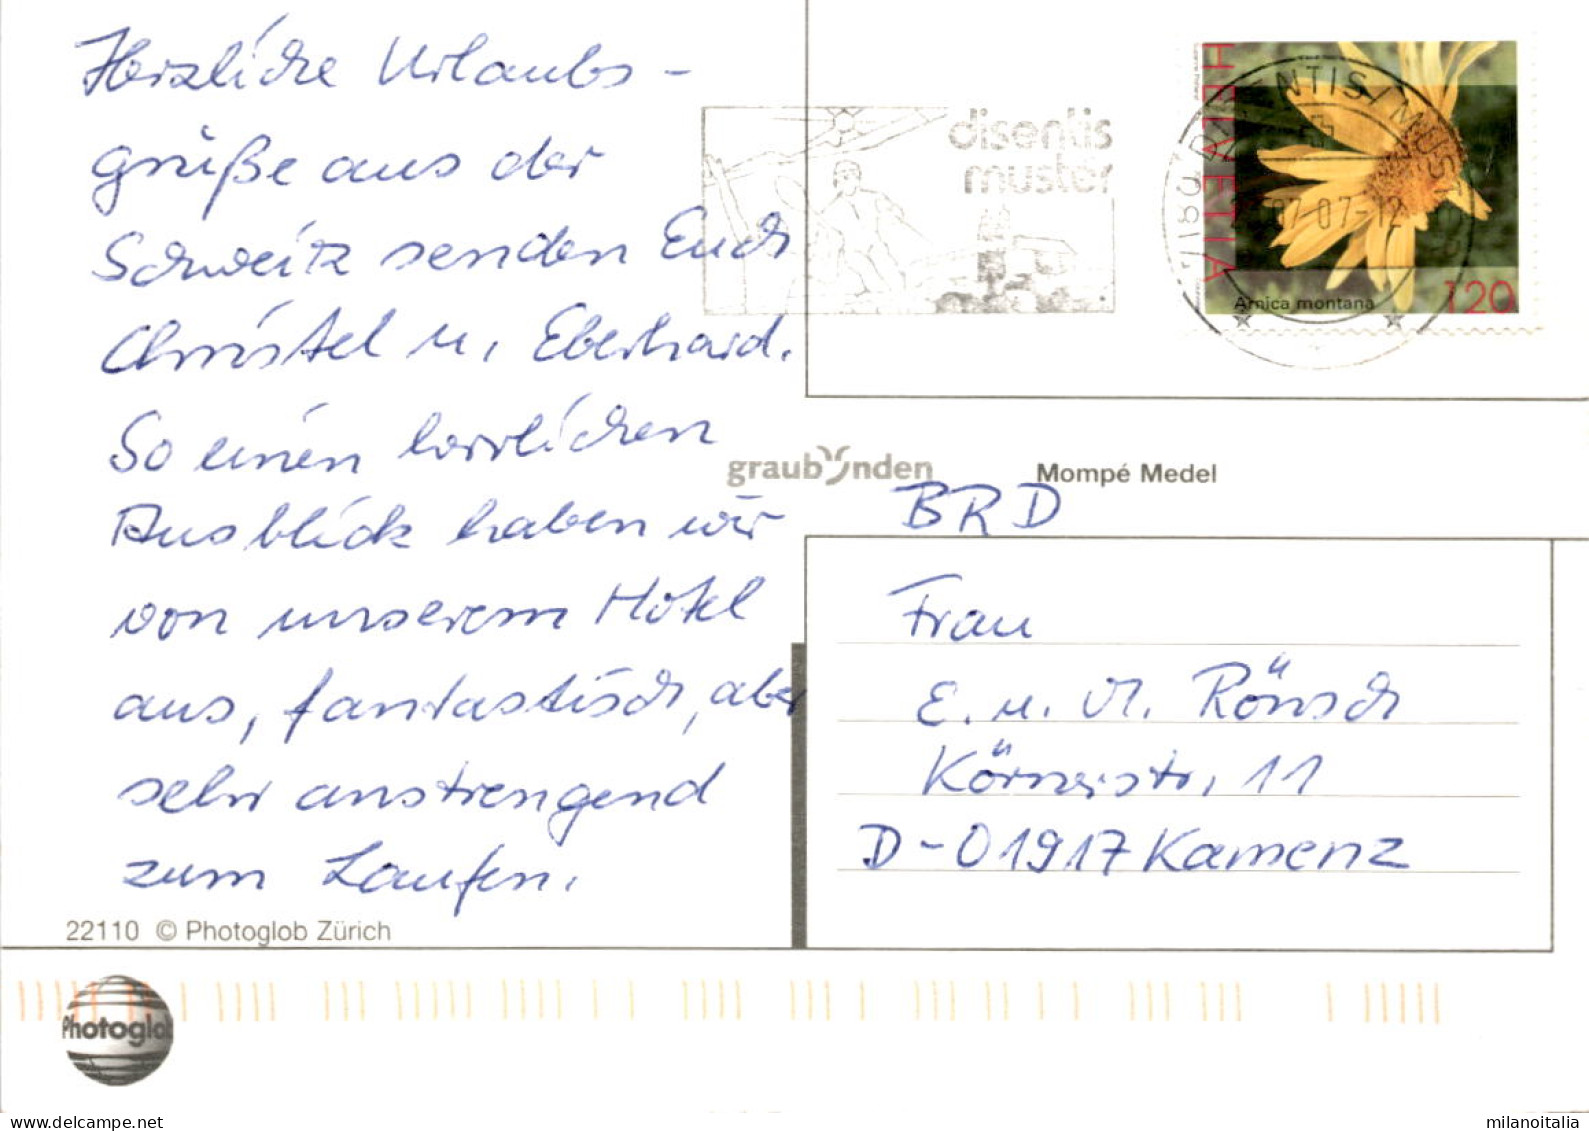 Herzliche Urlaubs-
grüße aus der
Schweitz senden Euch
Christel u. Eberhard.
So einen herrlichen
Ausblick haben wir
von unserem Hotel
aus, fantastisch, aber
sehr anstrengend
zum Laufen.
22110 © Photoglob Zürich
Photoglob
disentis
muster
HELVETIA
Arnica montana
120
graubünden
Mompé Medel
BRD
Frau
E. u. M. Rönsch
Körnerstr. 11
D-01917 Kamenz
www.delcampe.net
milanoitalia